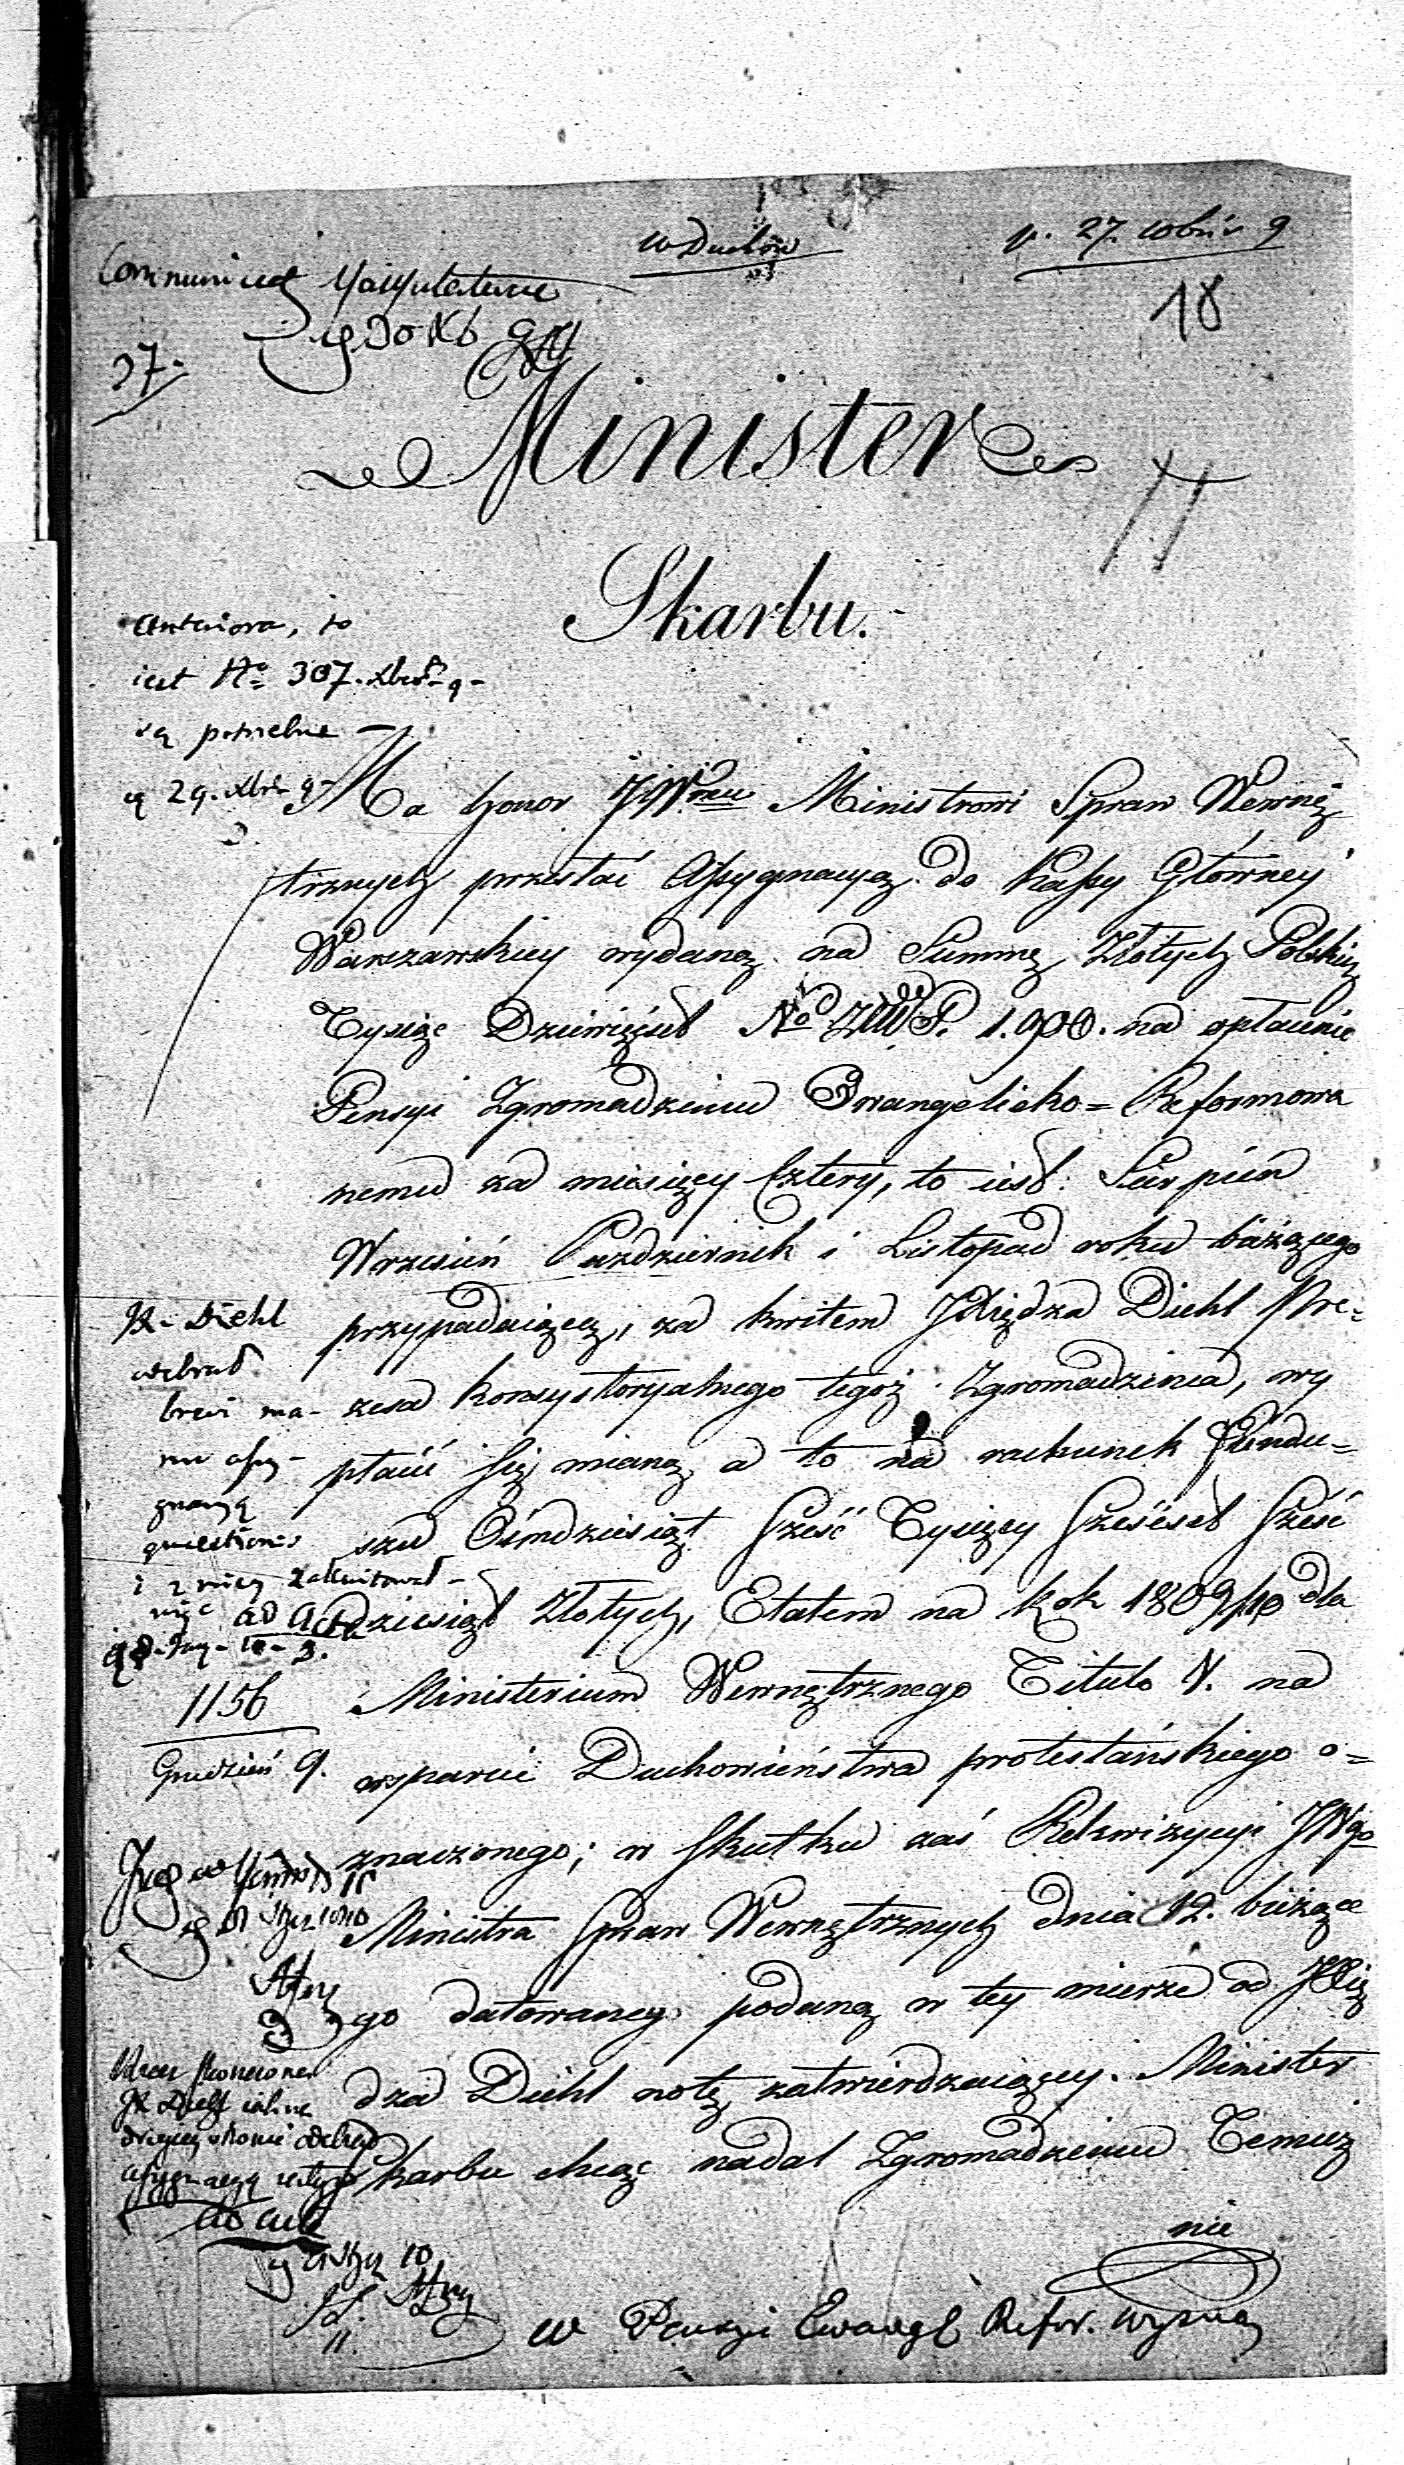 w Duchow
p. 27. 10br. 9
18
37.
Minister
Skarbu.
anteriora, to
iest No 307. Xbr. 9
są potrzebne
29. Xbr. 9
Ma honor JWmu Ministrowi Spraw Wewnę
trznych przesłać Assygnacyą do Kassy Główney
Warszawskiey wydaną na Summę Złotych Polskich
Tysiąc Dziewięćset No P. 1.900. na opłacenie
Pensyi Zgromadzeniu Ewangelicko=Reformowa
nemu za miesięcy Cztery, to iest: Sierpień
Wrzesień Październik i Listopad roku bieżącego
przypadaiącey, za kwitem JXiędza Diehl Pre-
zesa Konsystoryalnego tegoż Zgromadzenia, wy
płacić się mianą, a to na rachunek Fundu=
szu Ośmdziesiąt Sześć Tysięcy Sześćset Sześć
dziesiąt Złotych, Etatem na Rok 1809/10 dla
Ministerium Wewnętrznego Titulo V. na
wsparcie Duchowieństwa protestańskiego o=
znaczonego; w Skutku zaś Rekwizycyi JWgo
Ministra Spraw Wewnętrznych dnia 12. bieżące
go datowaney podaną w tey mierze od JXię
dza Diehl notę zatwierdzaiącey. Minister
Skarbu chcąc nadal Zgromadzeniu Temuż
nie
X. Diehl
odebrał
brevi ma-
nu assy-
gnacyą
quaestionis
i z niey zakwitował
więc ad acta
1156
Grudzień 9.
JX Diehl
assygnacyą
ad acta
w Pensyi Ewangl Refor. wyzna